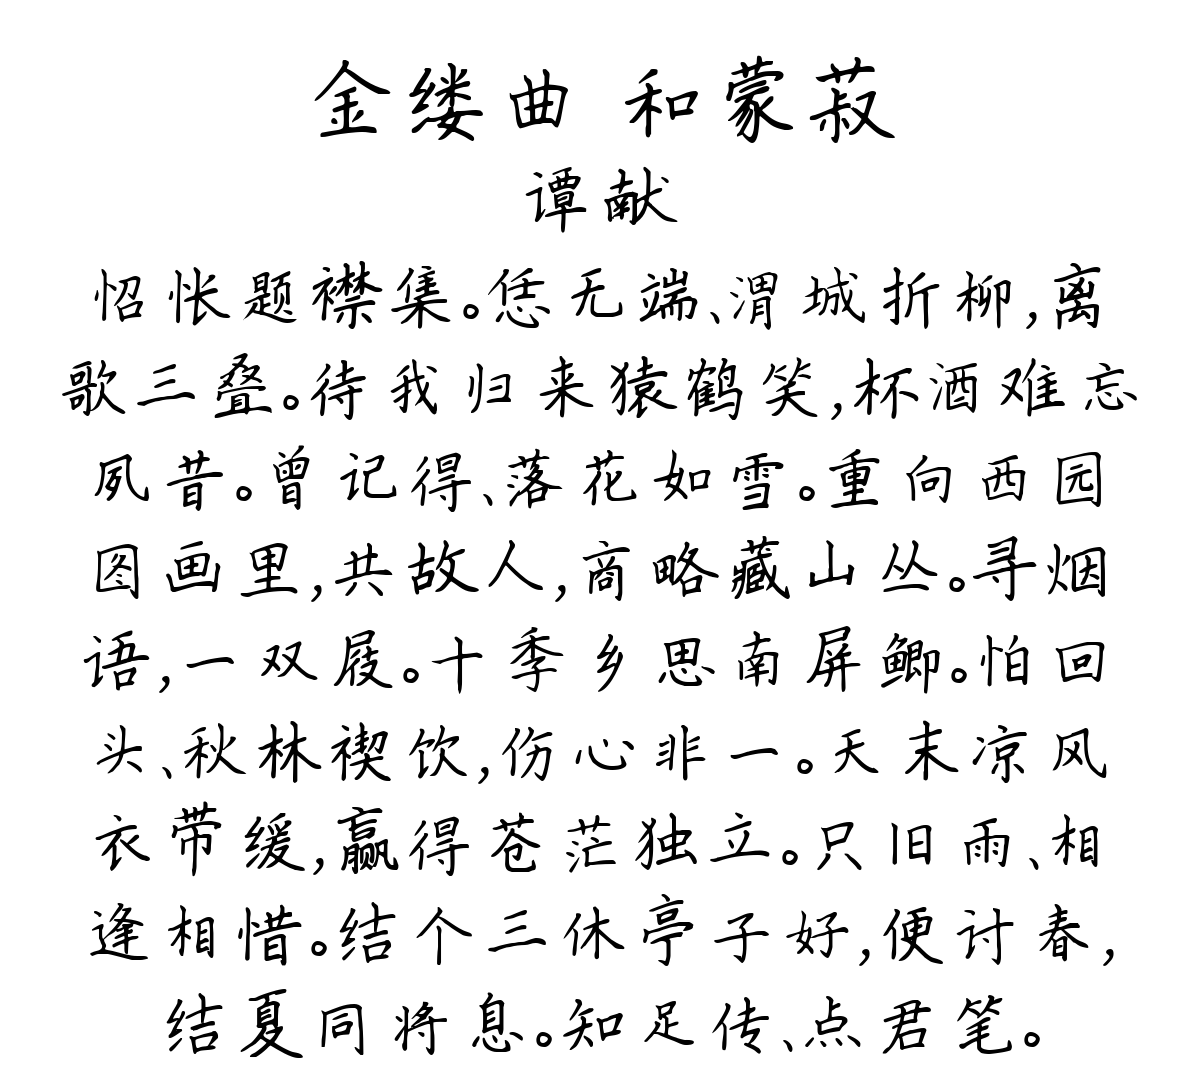 金缕曲 和蒙菽
谭献
怊怅题襟集。恁无端、渭城折柳,离
歌三叠。待我归来猿鹤笑,杯酒难忘
夙昔。曾记得、落花如雪。重向西园
图画里,共故人,商略藏山丛。寻烟
语,一双屐。十季乡思南屏鲫。怕回
头、秋林禊饮,伤心非一。天末凉风
衣带缓,赢得苍茫独立。只旧雨、相
逢相惜。结个三休亭子好,便讨春,
结夏同将息。知足传、点君笔。